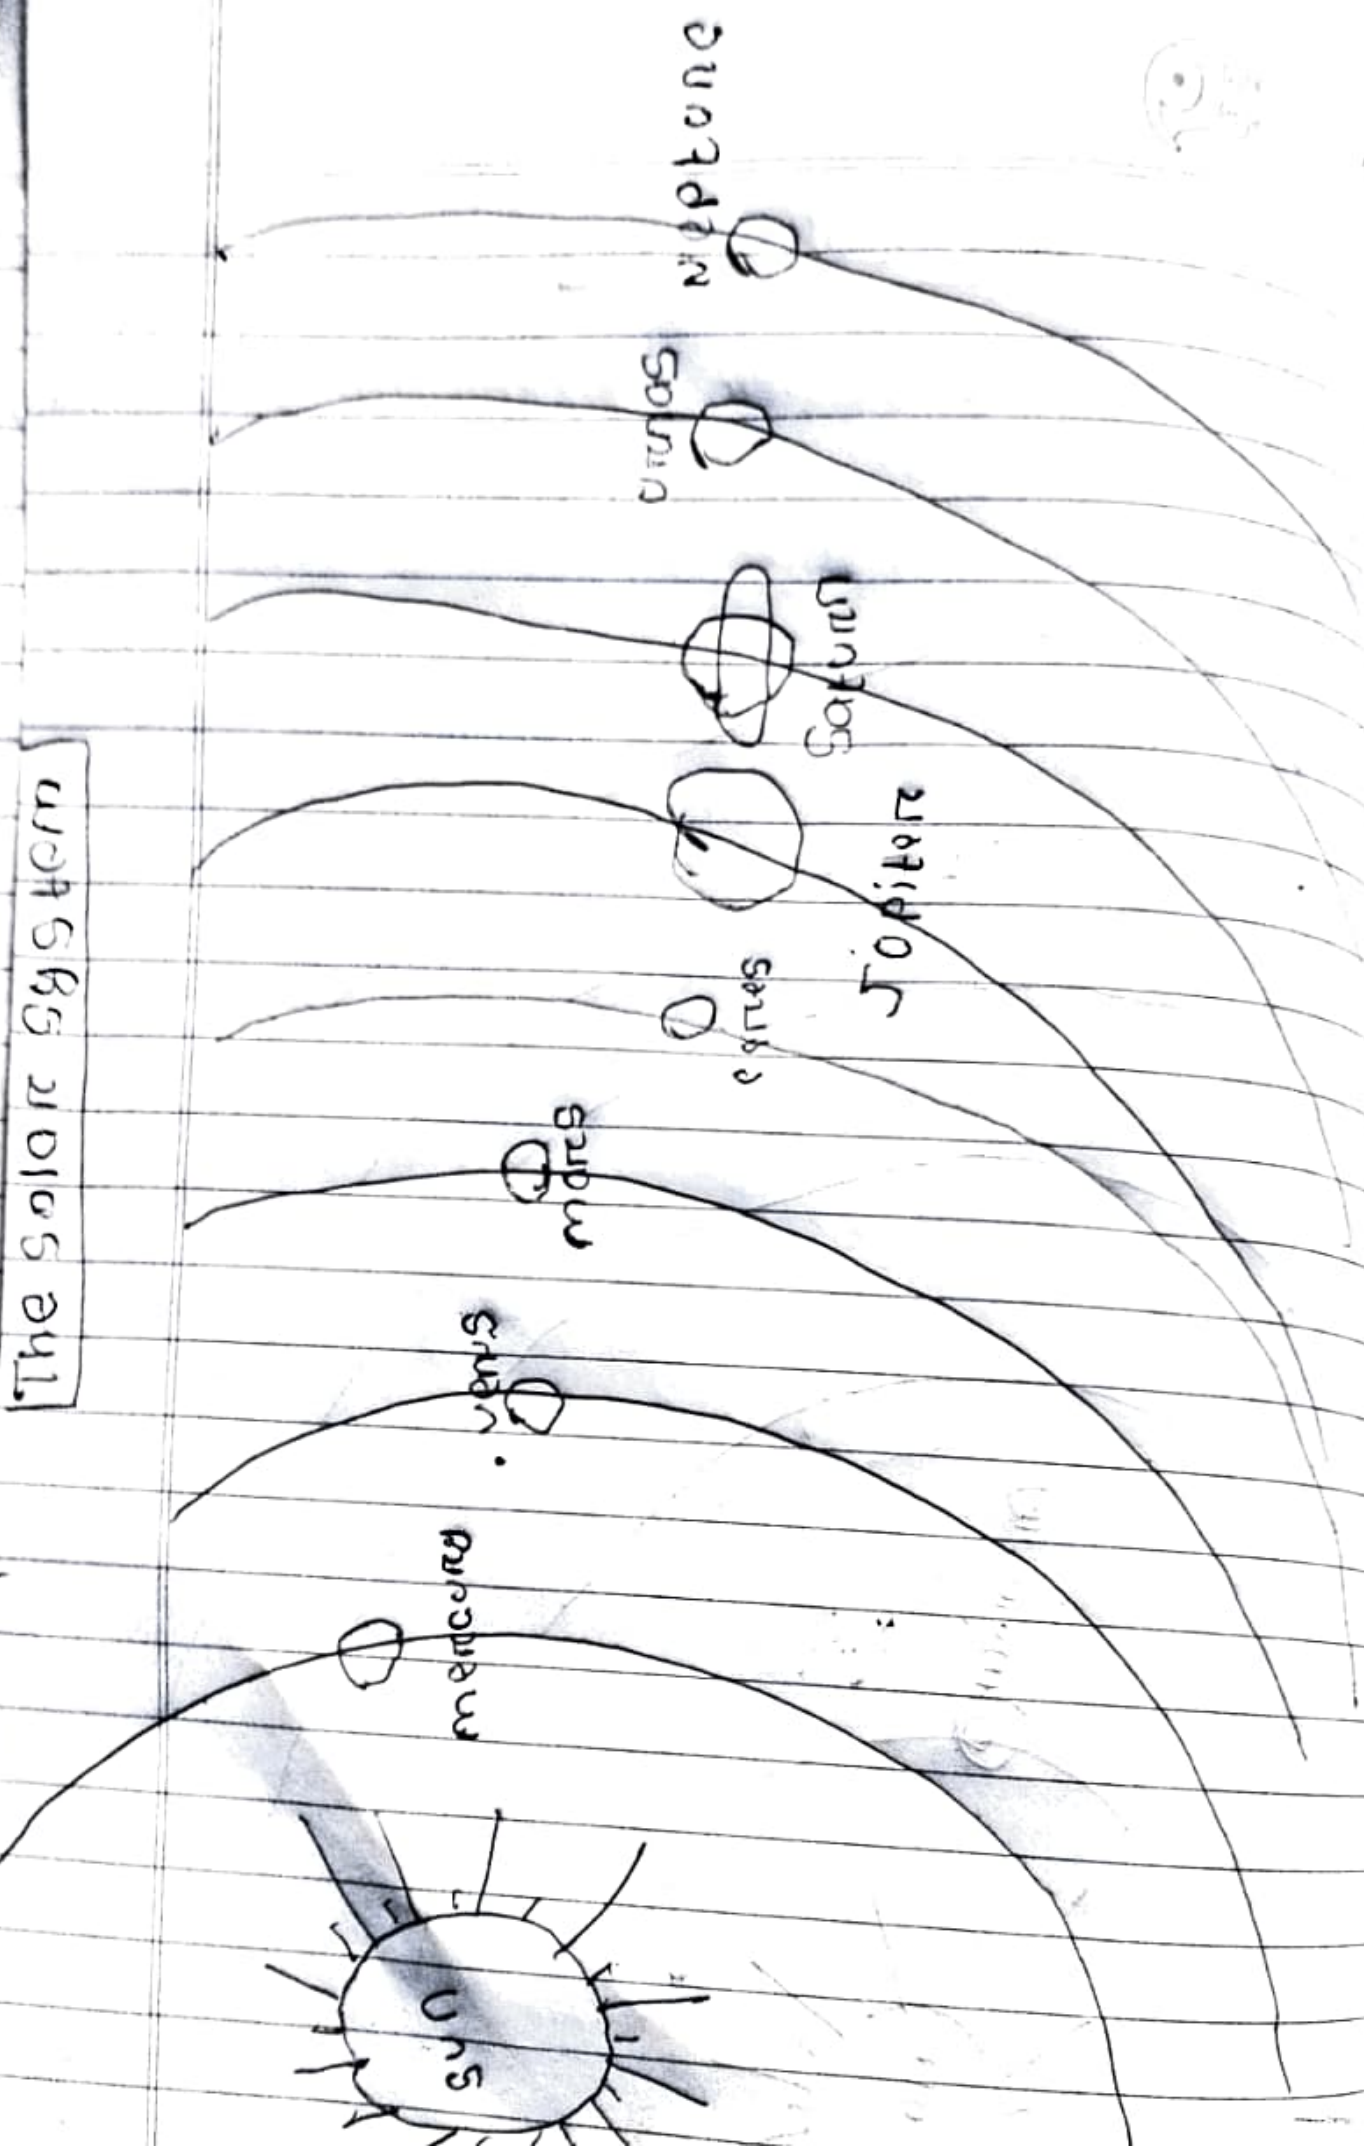 The Solar System
Sun
mercury
venus
mars
Jopiter
Saturn
Neptone